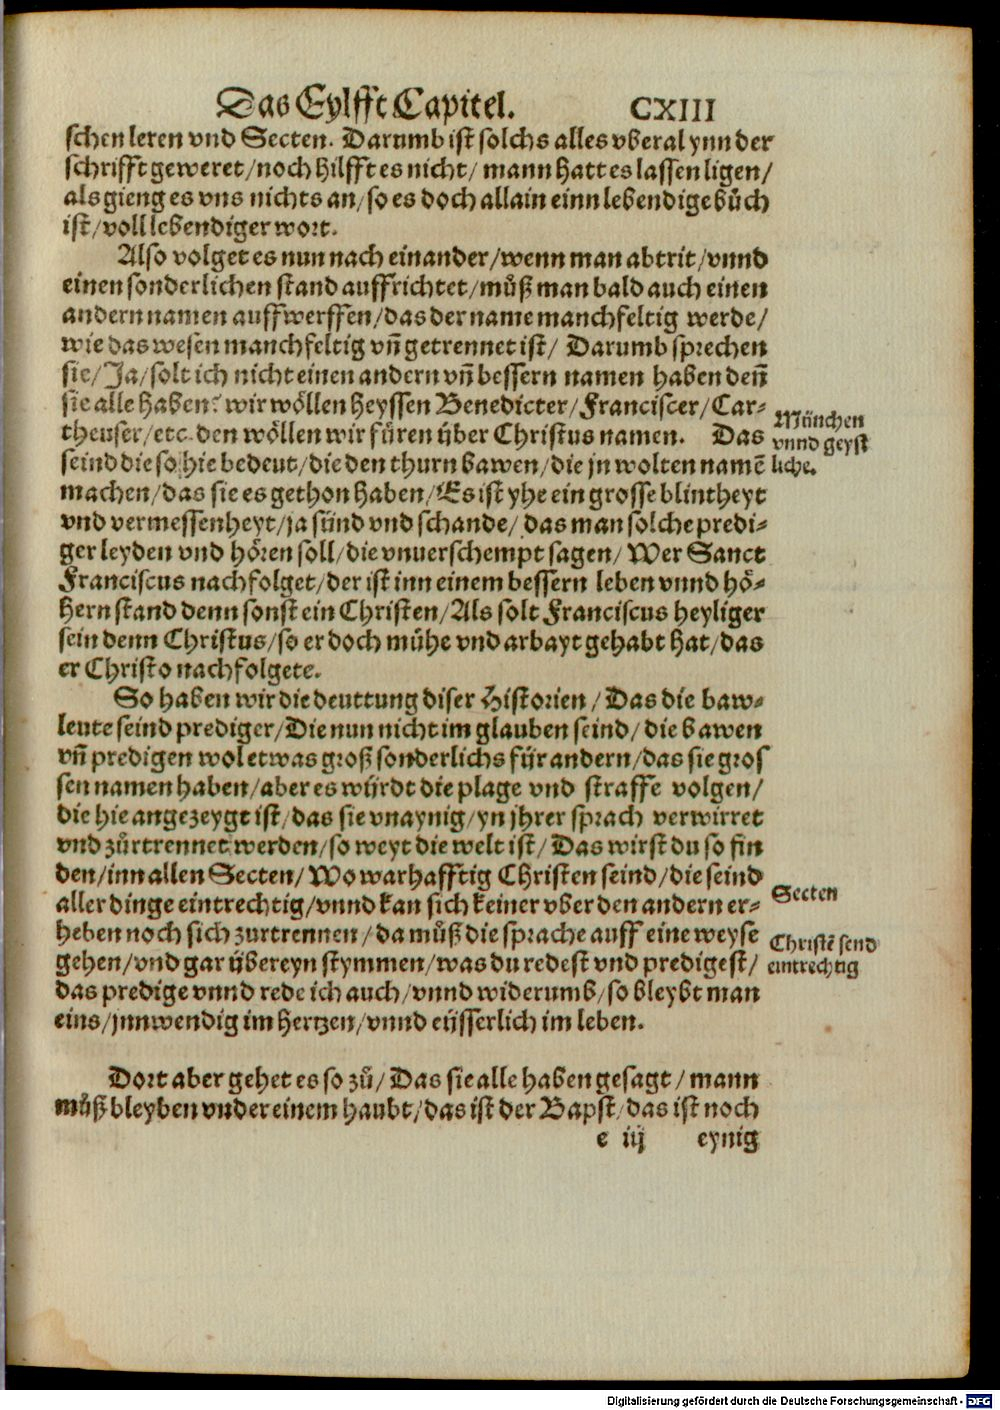 Das Eylfft Capitel. CXIII
schen leren vnd Secten. Darumb ist solchs alles vberal ynn der
schrifft geweret/noch hilfft es nicht/ mann hatt es lassen ligen/
als gieng es vns nichts an/so es doch allain einn lebendige bůch
ist/voll lebendiger wort.
Also volget es nun nach einander/wenn man abtrit/vnnd
einen sonderlichen stand auffrichtet/můß man bald auch einen
andern namen auffwerffen/das der name manchfeltig werde/
wie das wesen manchfeltig vñ getrennet ist/ Darumb sprechen
sie/Ja/solt ich nicht einen andern vñ bessern namen haben deñ
sie alle haben? wir wöllen heyssen Benedicter/Franciscer/Car-
theuser/etc. den wöllen wir füren ÿber Christus namen. Das
seind die so hie bedeut/die den thurn bawen/die jn wolten namē
machen/das sie es gethon haben/Es ist yhe ein grosse blintheyt
vnd vermessenheyt/ja sünd vnd schande/das man solche predi-
ger leyden vnd hören soll/die vnuerschempt sagen/ Wer Sanct
Franciscus nachfolget/der ist inn einem bessern leben vnnd hö-
hern stand denn sonst ein Christen/Als solt Franciscus heyliger
sein denn Christus/so er doch mühe vnd arbayt gehabt hat/das
er Christo nachfolgete.
München
vnnd geyst
liche.
So haben wir die deuttung diser Historien/Das die baw-
leute seind prediger/Die nun nicht im glauben seind/die bawen
vñ predigen wol etwas groß sonderlichs für andern/das sie gros
sen namen haben/aber es würdt die plage vnd straffe volgen/
die hie angezeygt ist/das sie vnaynig/yn jhrer sprach verwirret
vnd zůrtrennet werden/so weyt die welt ist/Das wirst du so fin
den/inn allen Secten/Wo warhafftig Christen seind/die seind
aller dinge eintrechtig/vnnd kan sich keiner vber den andern er-
heben noch sich zurtrennen/da můß die sprache auff eine weyse
gehen/vnd gar ÿbereyn stymmen/was du redest vnd predigest/
das predige vnnd rede ich auch/vnnd widerumb/so bleybt man
eins/jnnwendig im hertzen/vnnd eüsserlich im leben.
Secten
Christē send
eintrechtig
Dort aber gehet es so zů/Das sie alle haben gesagt/mann
můß bleyben vnder einem haubt/das ist der Bapst/das ist noch
e iij eynig
Digitalisierung gefördert durch die Deutsche Forschungsgemeinschaft - DFG